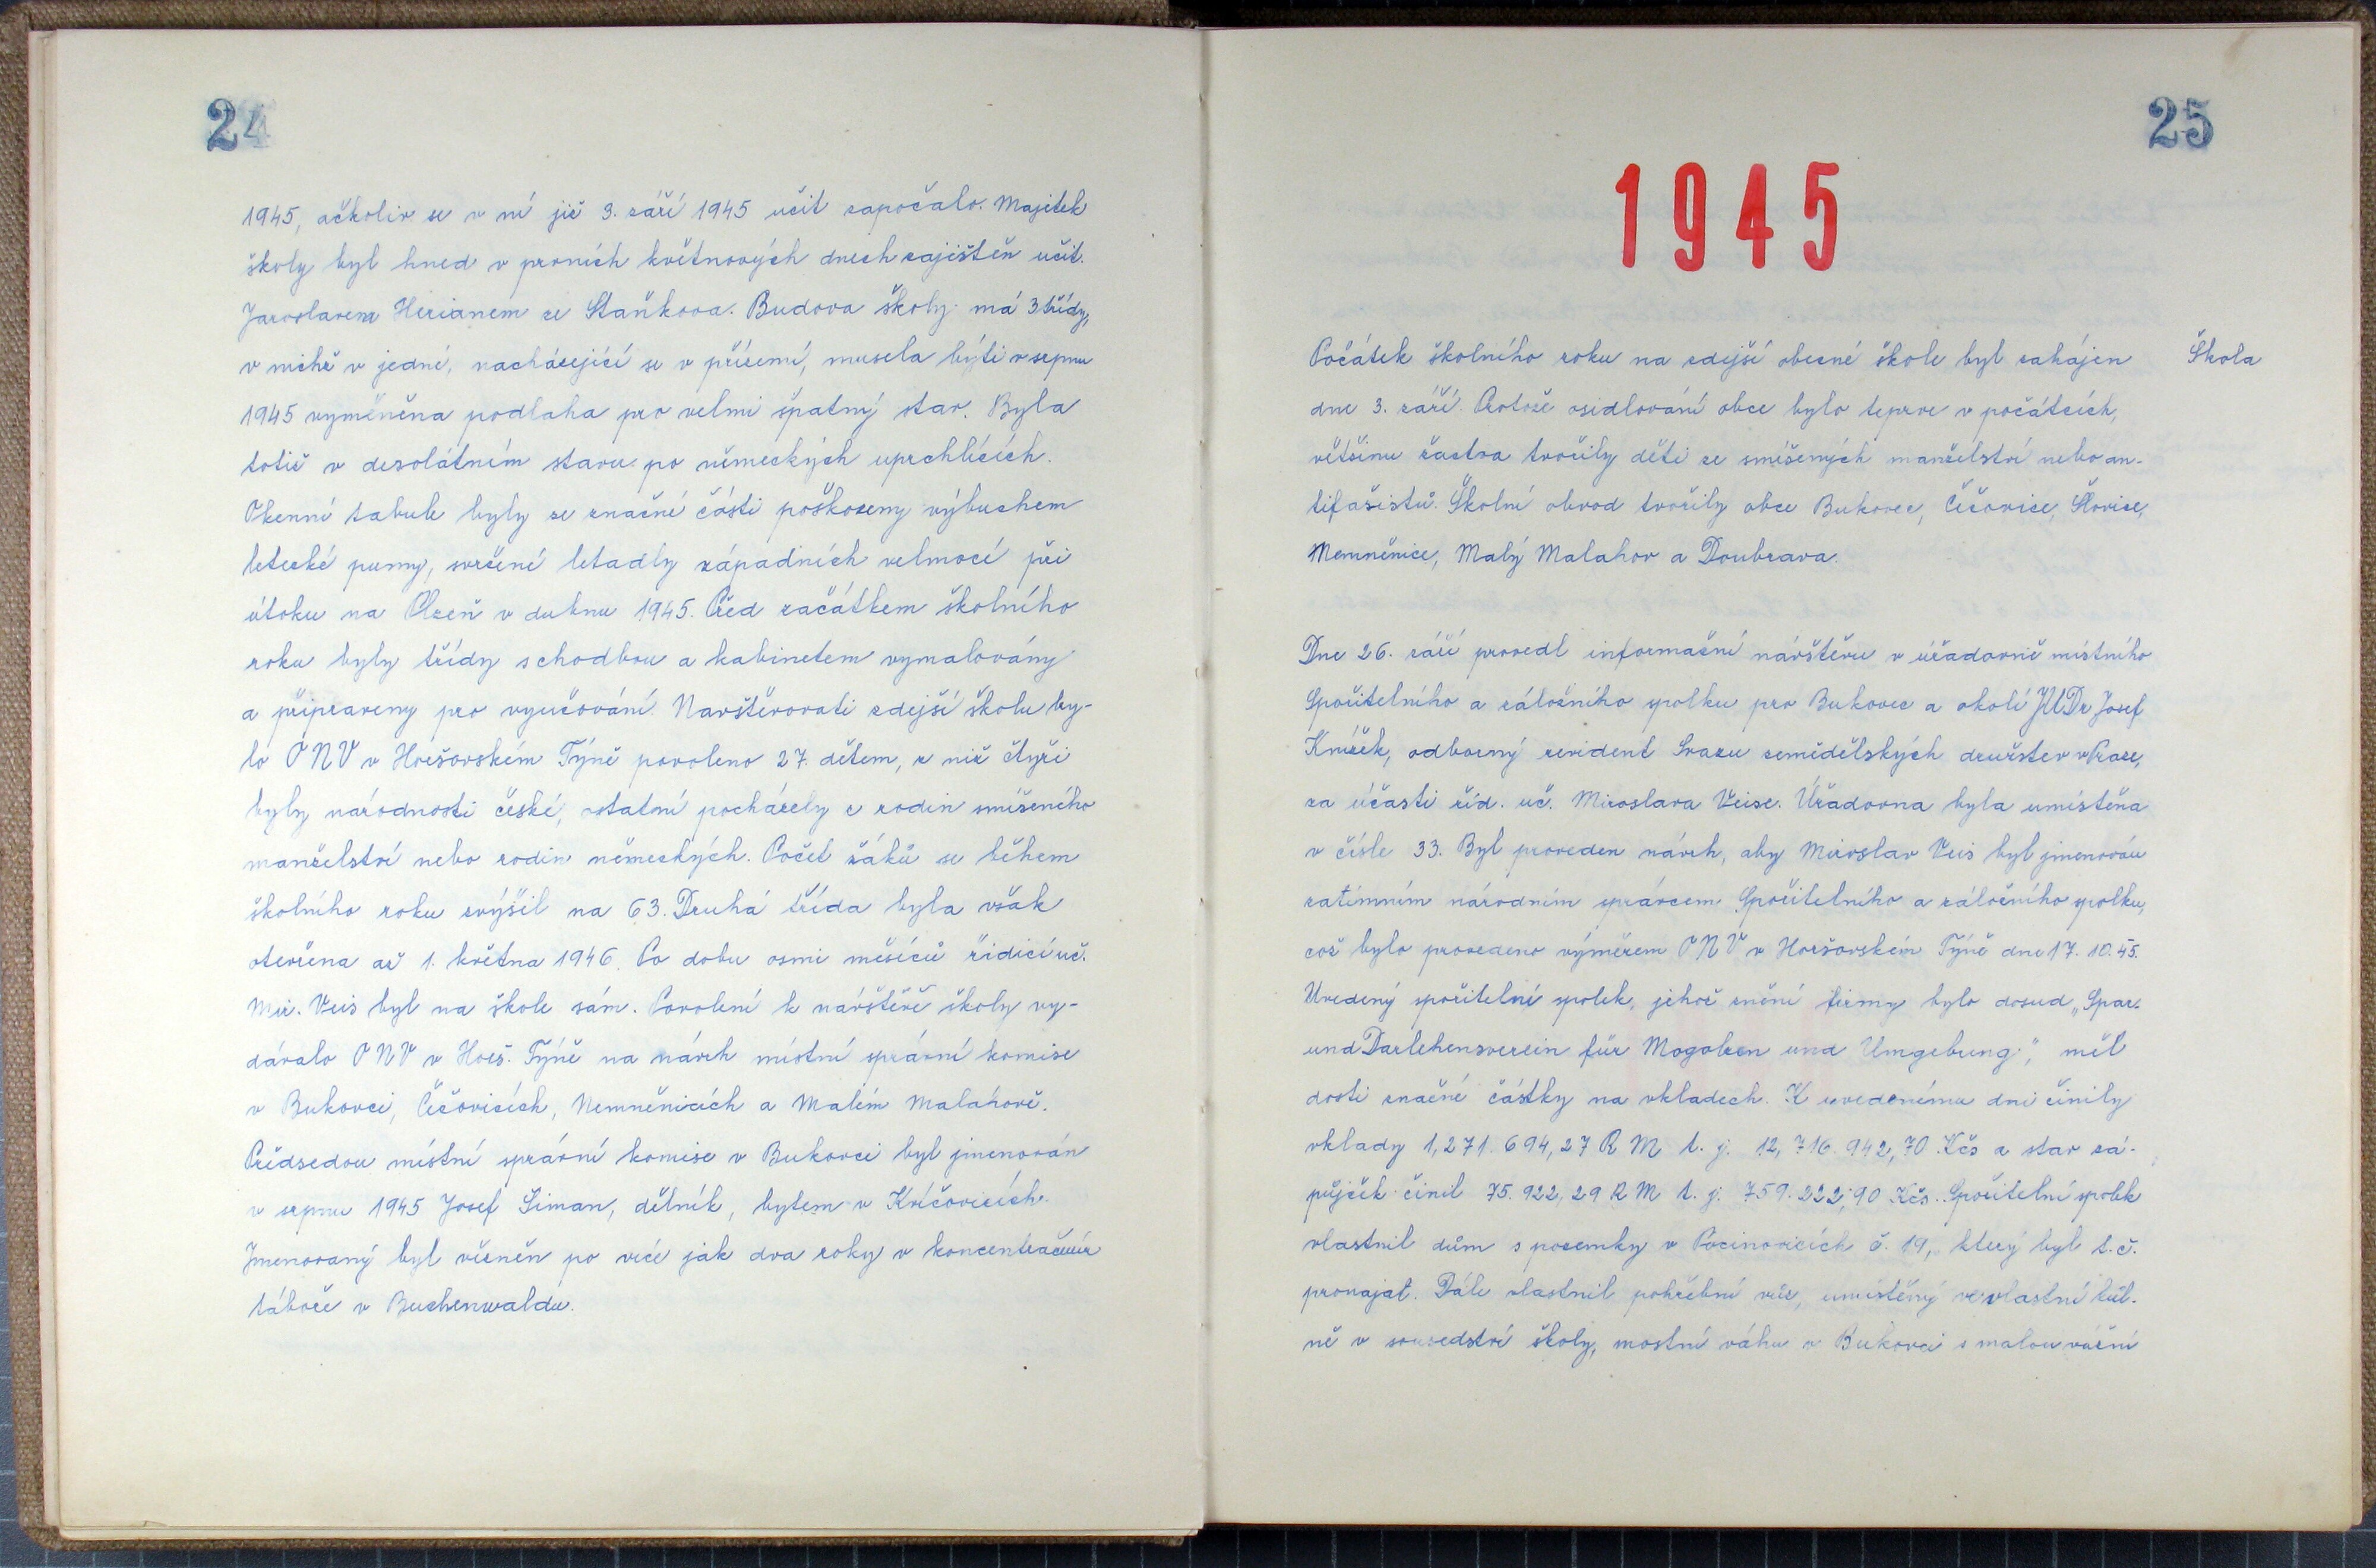 24
1945, ačkoliv se v ní již 3. září 1945 učit započalo. Majitek
školy byl hned v prvních květnových dnech zajištěn učit.
Jaroslavem Herianem ze Staňkova. Budova školy má 3 třídy,
v nichž v jedné, nacházející se v přízemí, musela býti v srpnu
1945 vyměněna podlaha pro velmi špatný stav. Byla
totiž v desolátním stavu po německých uprchlících.
Okenní tabule byly ze značné části poškozeny výbuchem
letecké pumy, svržené letadly západních velmocí při
útoku na Plzeň v dubnu 1945. Před začátkem školního
roku byly třídy s chodbou a kabinetem vymalovány
a připraveny pro vyučování. Navštěvovati zdejší školu by-
lo ONV v Horšovském Týně povoleno 27 dětem, z niž čtyři
byly národnosti české, ostatní pocházely z rodin smíšeného
manželství nebo rodin německých. Počet žáků se během
školního roku zvýšil na 63. Druhá třída byla však
otevřena až 1. května 1946. Po dobu osmi měsíců řidicí uč.
Mir. Veis byl na škole sám. Povolení k návštěvě školy vy-
dávalo ONV v Horš. Týně na návrh místní správní komise
v Bukovci, Čečovicích, Nemněnicích a Malém Malahově.
Předsedou místní správní komise v Bukovci byl jmenován
v srpnu 1945 Josef Šiman, dělník, bytem v Kvíčovicích.
Jmenovaný byl vězněn po více jak dva roky v koncentračním
táboře v Buchenwaldu.
25
1945
Počátek školního roku na zdejší obecné škole byl zahájen
Škola
dne 3. září. Protože osidlování obce bylo teprve v počátcích,
většinu žactva tvořily děti ze smíšených manželství nebo an-
tifašistů. Školní obvod tvořily obce Bukovec, Čečovice, Štovice,
Memněnice, Malý Malahov a Doubrava.
Dne 26. září provedl informační návštěvu v úřadovně místního
Spořitelního a záložního spolku pro Bukovec a okolí JUDr Josef
Knížek, odborný revident Svazu zemědělských družstev v Praze,
za účasti říd. uč. Miroslava Veise. Úřadovna byla umístěna
v čísle 33. Byl proveden návrh, aby Miroslav Veis byl jmenován
zatímním národním správcem Spořitelního a záložního spolku,
což bylo provedeno výměrem ONV v Horšovském Týně dne 17. 10. 45.
Uvedený spořitelní spolek, jehož znění firmy bylo dosud „Spar-
und Darlehensverein für Mogolzen und Umgebung“, měl
dosti značné částky na vkladech. K uvedenému dni činily
vklady 1,271.694,27 RM t. j. 12,716.942,70 Kčs a stav zá-
půjček činil 75.922,29 RM t. j. 759.222,90 Kčs. Spořitelní spolek
vlastnil dům s pozemky v Pocinovicích č. 19, který byl t. č.
pronajat. Dále vlastnil pohřební vůz, umístěný ve vlastní kůl-
ně v sousedství školy, mostní váhu v Bukovci s malou vážní